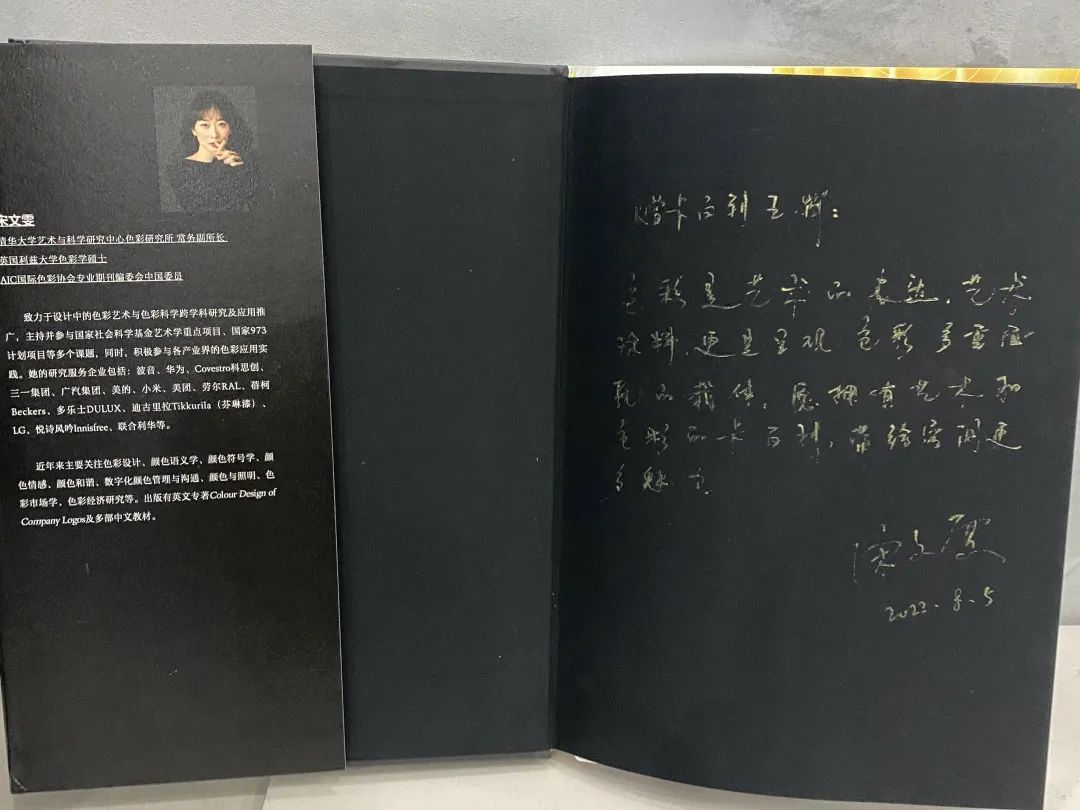 宋文雯
清华大学艺术与科学研究中心色彩研究所 常务副所长
英国利兹大学色彩学硕士
AIC国际色彩协会专业期刊编委会中国委员
致力于设计中的色彩艺术与色彩科学跨学科研究及应用推
广，主持并参与国家社会科学基金艺术学重点项目、国家973
计划项目等多个课题，同时，积极参与各产业界的色彩应用实
践。她的研究服务企业包括：波音、华为、Covestro科思创、
三一集团、广汽集团、美的、小米、美团、劳尔RAL、蓓柯
Beckers、多乐士DULUX、迪古里拉Tikkurila（芬琳漆）、
LG、悦诗风吟Innisfree、联合利华等。
近年来主要关注色彩设计、颜色语义学、颜色符号学、颜
色情感、颜色和谐、数字化颜色管理与沟通、颜色与照明、色
彩市场学、色彩经济研究等。出版有英文专著Colour Design of
Company Logos及多部中文教材。
赠卡百利品牌：
色彩是艺术的表达，艺术
涂料，更是呈现色彩多重
的载体，愿拥有艺术和
色彩的卡百利，带给空间更
多魅力
宋文雯
2022.8.5